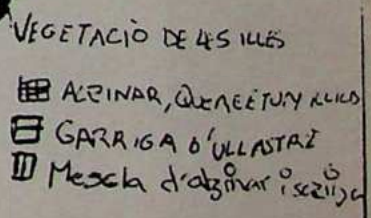 VEGETACIÒ DE LES ILLES
ALZINAR, QUERCETUM ILICIS
GARRIGA D'ULLASTRE
Mescla d'alzinar i